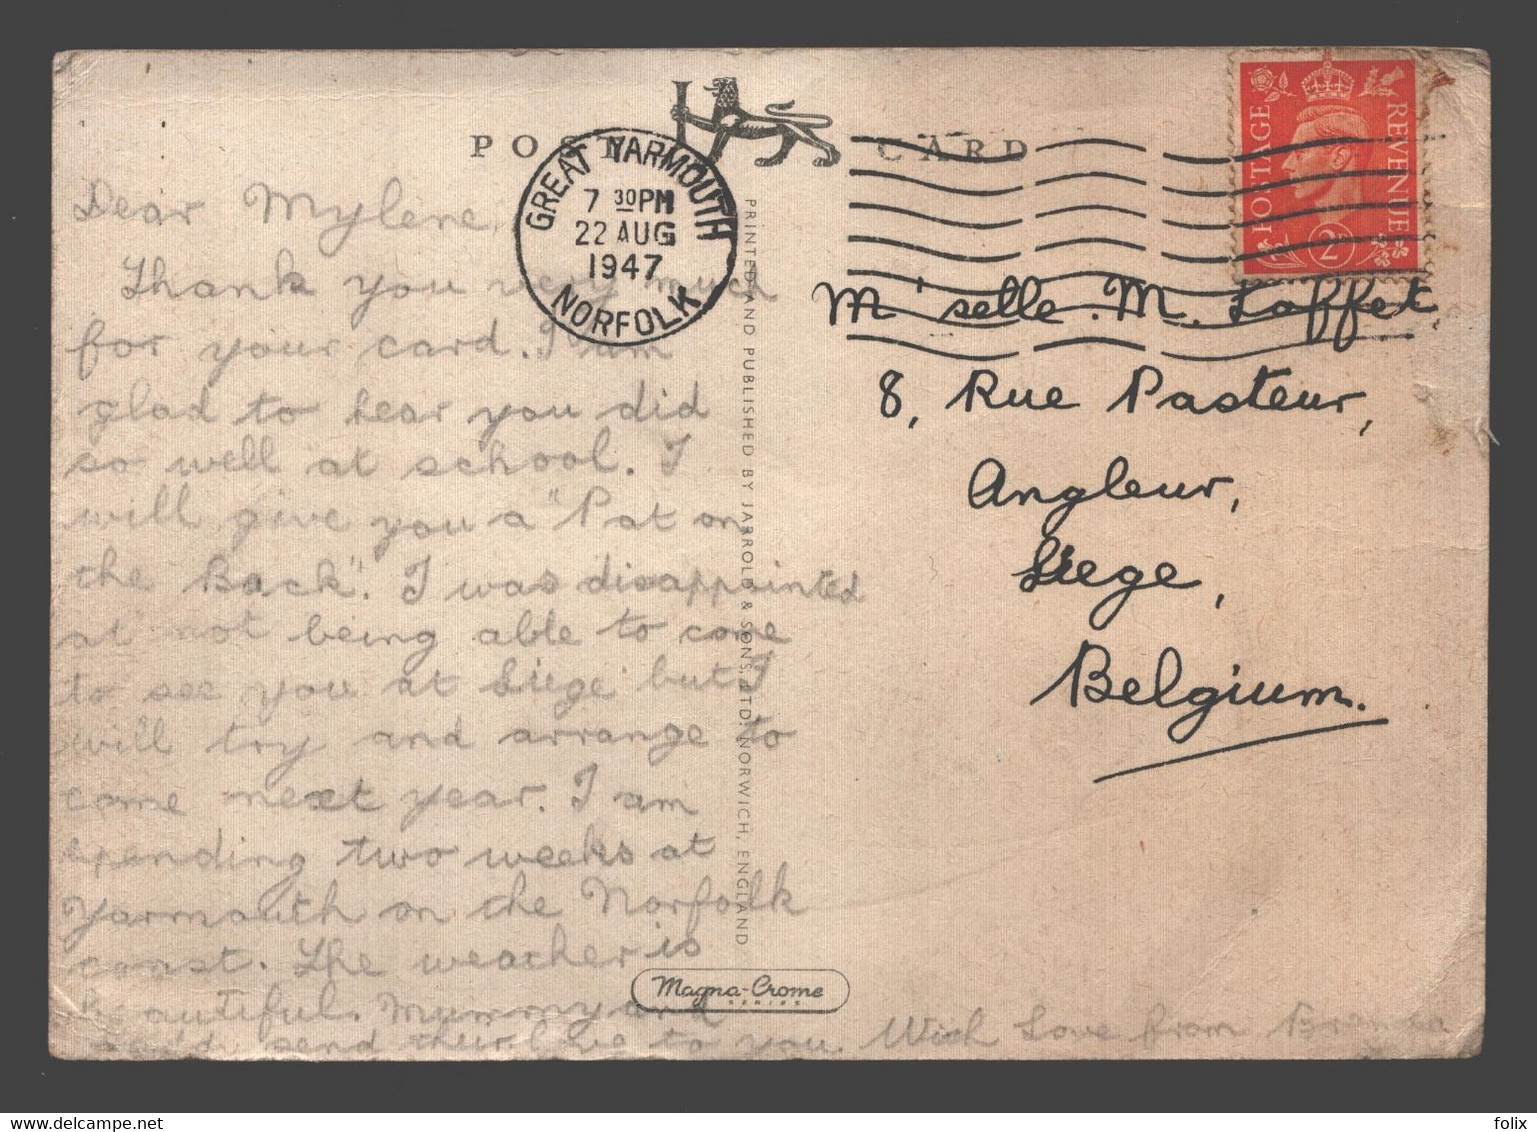 POST CARD
GREAT YARMOUTH
7 30PM
22 AUG
1947
NORFOLK
POSTAGE
REVENUE
2D
Dear Mylene,
Thank you very much
for your card. I am
glad to hear you did
so well at school. I
will give you a "Pat on
the Back". I was disappointed
at not being able to come
to see you at Liege but I
will try and arrange to
come next year. I am
spending two weeks at
Yarmouth on the Norfolk
coast. The weather is
beautiful. Mummy and
send their love to you. With Love from Brenda
PRINTED AND PUBLISHED BY JARROLD & SONS, LTD. NORWICH, ENGLAND
Magna-Crome
SERIES
M'selle. M. Loffet
8, Rue Pasteur,
Angleur,
Liege,
Belgium.
delcampe.net
folix